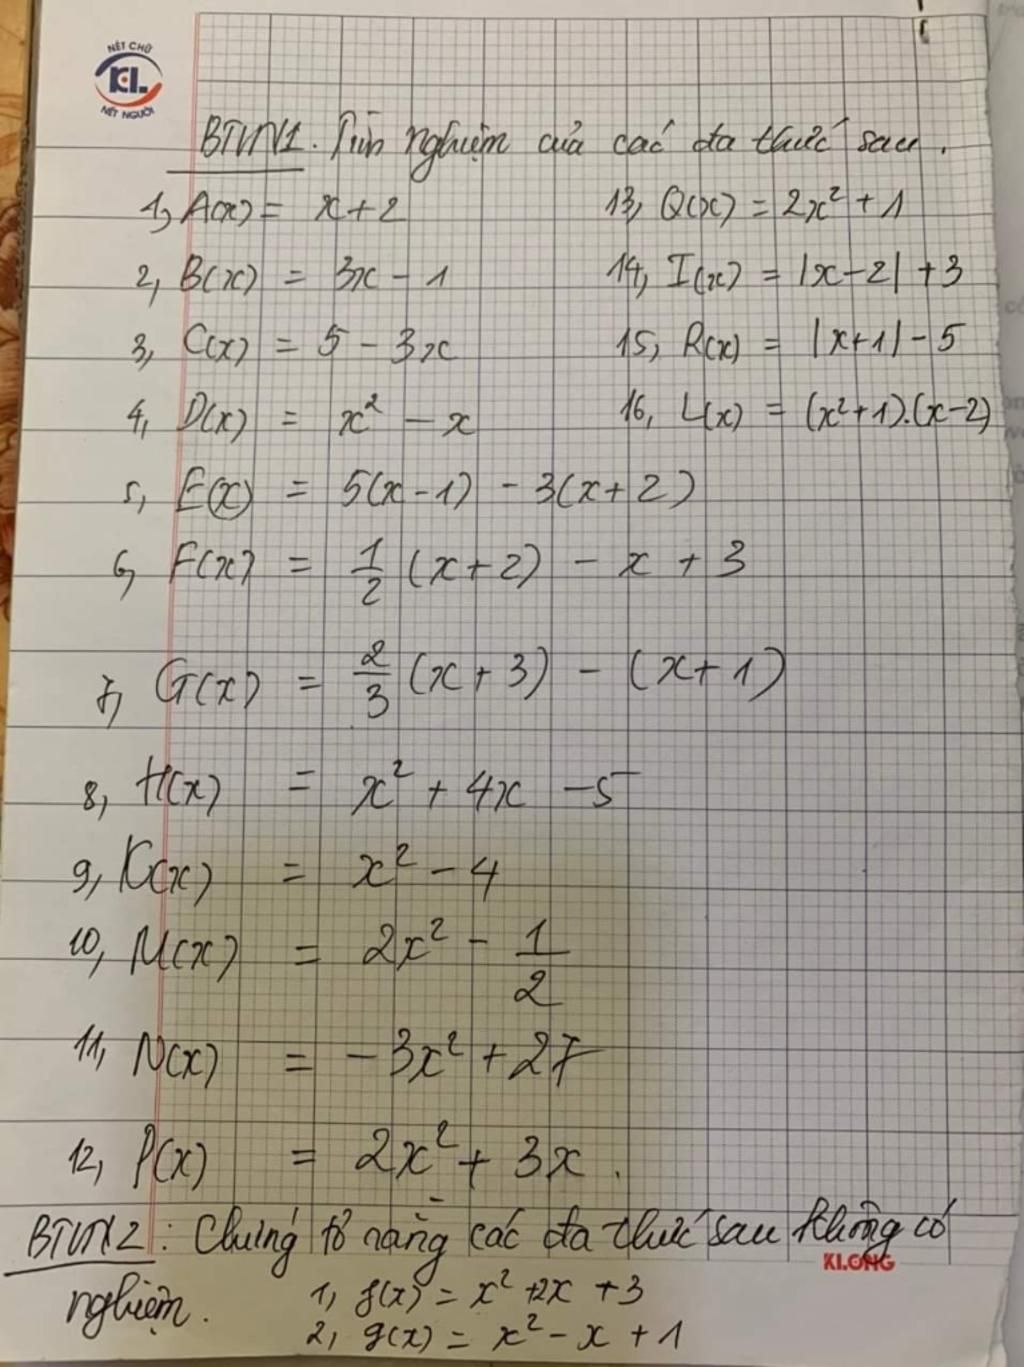 NÉT CHỮ
KL
NẾT NGƯỜI
BTVN1. Tìm nghiệm của các đa thức sau.
1, A(x) = x + 2
2, B(x) = 3x - 1
3, C(x) = 5 - 3x
4, D(x) = x² - x
5, E(x) = 5(x-1) - 3(x+2)
6, F(x) = 1/2 (x+2) - x + 3
7, G(x) = 2/3 (x+3) - (x+1)
8, H(x) = x² + 4x - 5
9, K(x) = x² - 4
10, M(x) = 2x² - 1/2
11, N(x) = -3x² + 27
12, P(x) = 2x² + 3x.
13, Q(x) = 2x² + 1
14, I(x) = |x-2| + 3
15, R(x) = |x+1| - 5
16, L(x) = (x²+1).(x-2)
BTVN2: Chứng tỏ rằng các đa thức sau không có
KLONG
nghiệm.
1, f(x) = x² + 2x + 3
2, g(x) = x² - x + 1